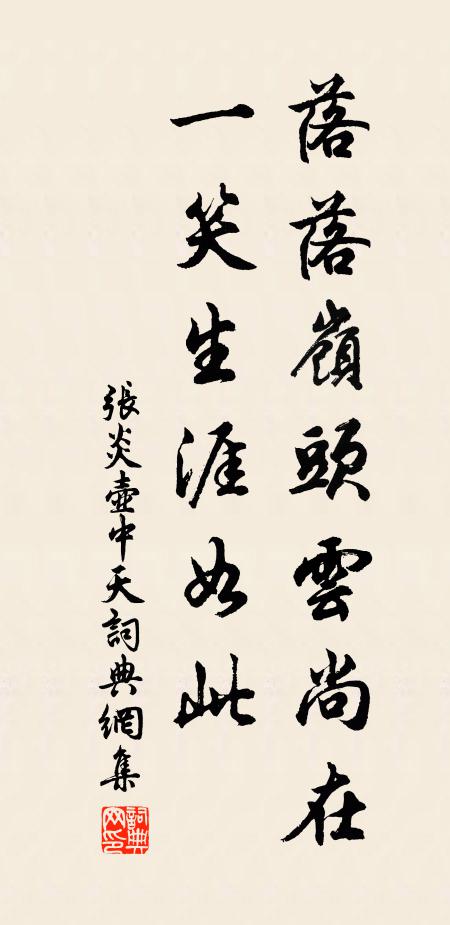 落落嶺頭雲尚在
一笑生涯如此
張炎壺中天詞典網集
詞典網印